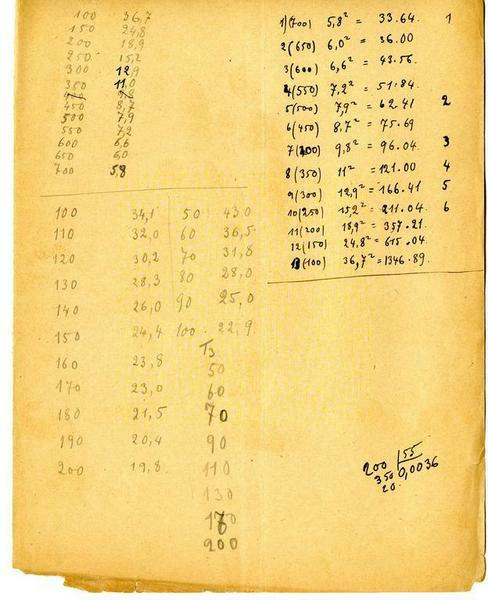 100 36,7
150 24,8
200 18,9
250 15,2
300 12,9
350 11,0
400 9,8
450 8,7
500 7,9
550 7,2
600 6,6
650 6,0
700 5,8
1)(700) 5,8² = 33.64. 1
2(650) 6,0² = 36.00
3(600) 6,6² = 43.56.
4(550) 7,2² = 51.84.
5(500) 7,9² = 62.41 2
6(450) 8,7² = 75.69
7(400) 9,8² = 96.04. 3
8(350) 11² = 121.00 4
9(300) 12,9² = 166.41 5
10(250) 15,2² = 211.04. 6
11(200) 18,9² = 357.21.
12(150) 24.8² = 615.04.
13(100) 36,7² = 1346.89.
100 34,1 50 43 0
110 32,0 60 36,5
120 30,2 70 31,8
130 28,3 80 28,0
140 26,0 90 25,0
150 24,4 100 22,9
160 23,8
170 23,0
180 21,5
190 20,4
200 19,8
50
60
70
90
110
130
200
200 55
350 0,0036
20